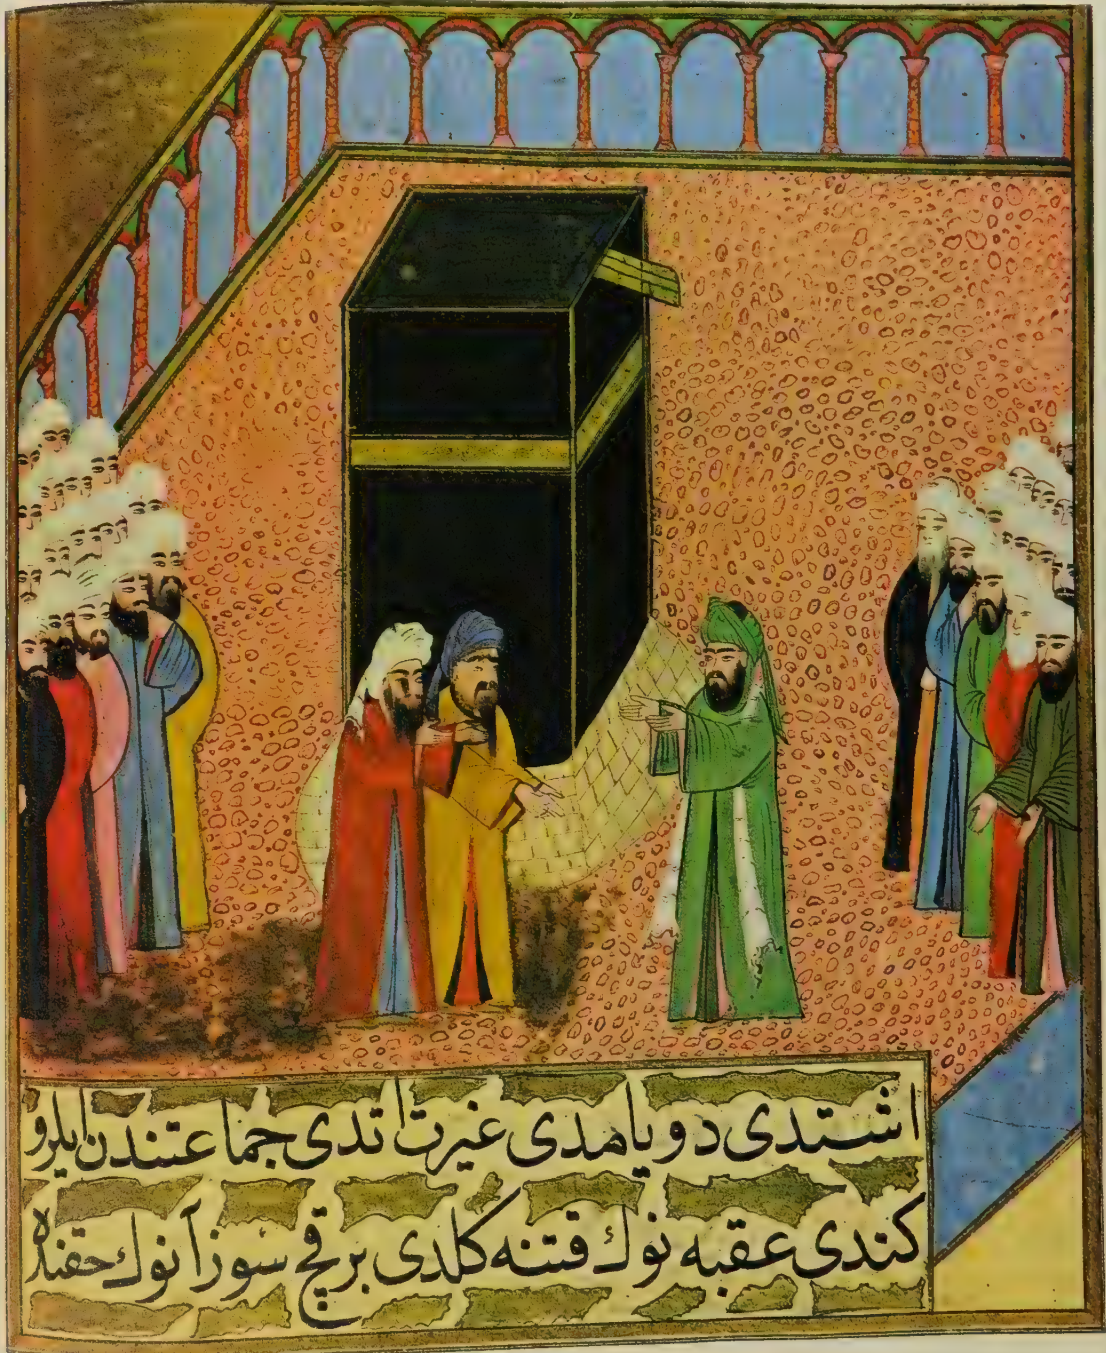 اشتدى دويامدى غيرت اتدى جماعتندن ايلرو
كندى عقبه نوك قتنه كلدى بر قچ سوز آنوك حقنده